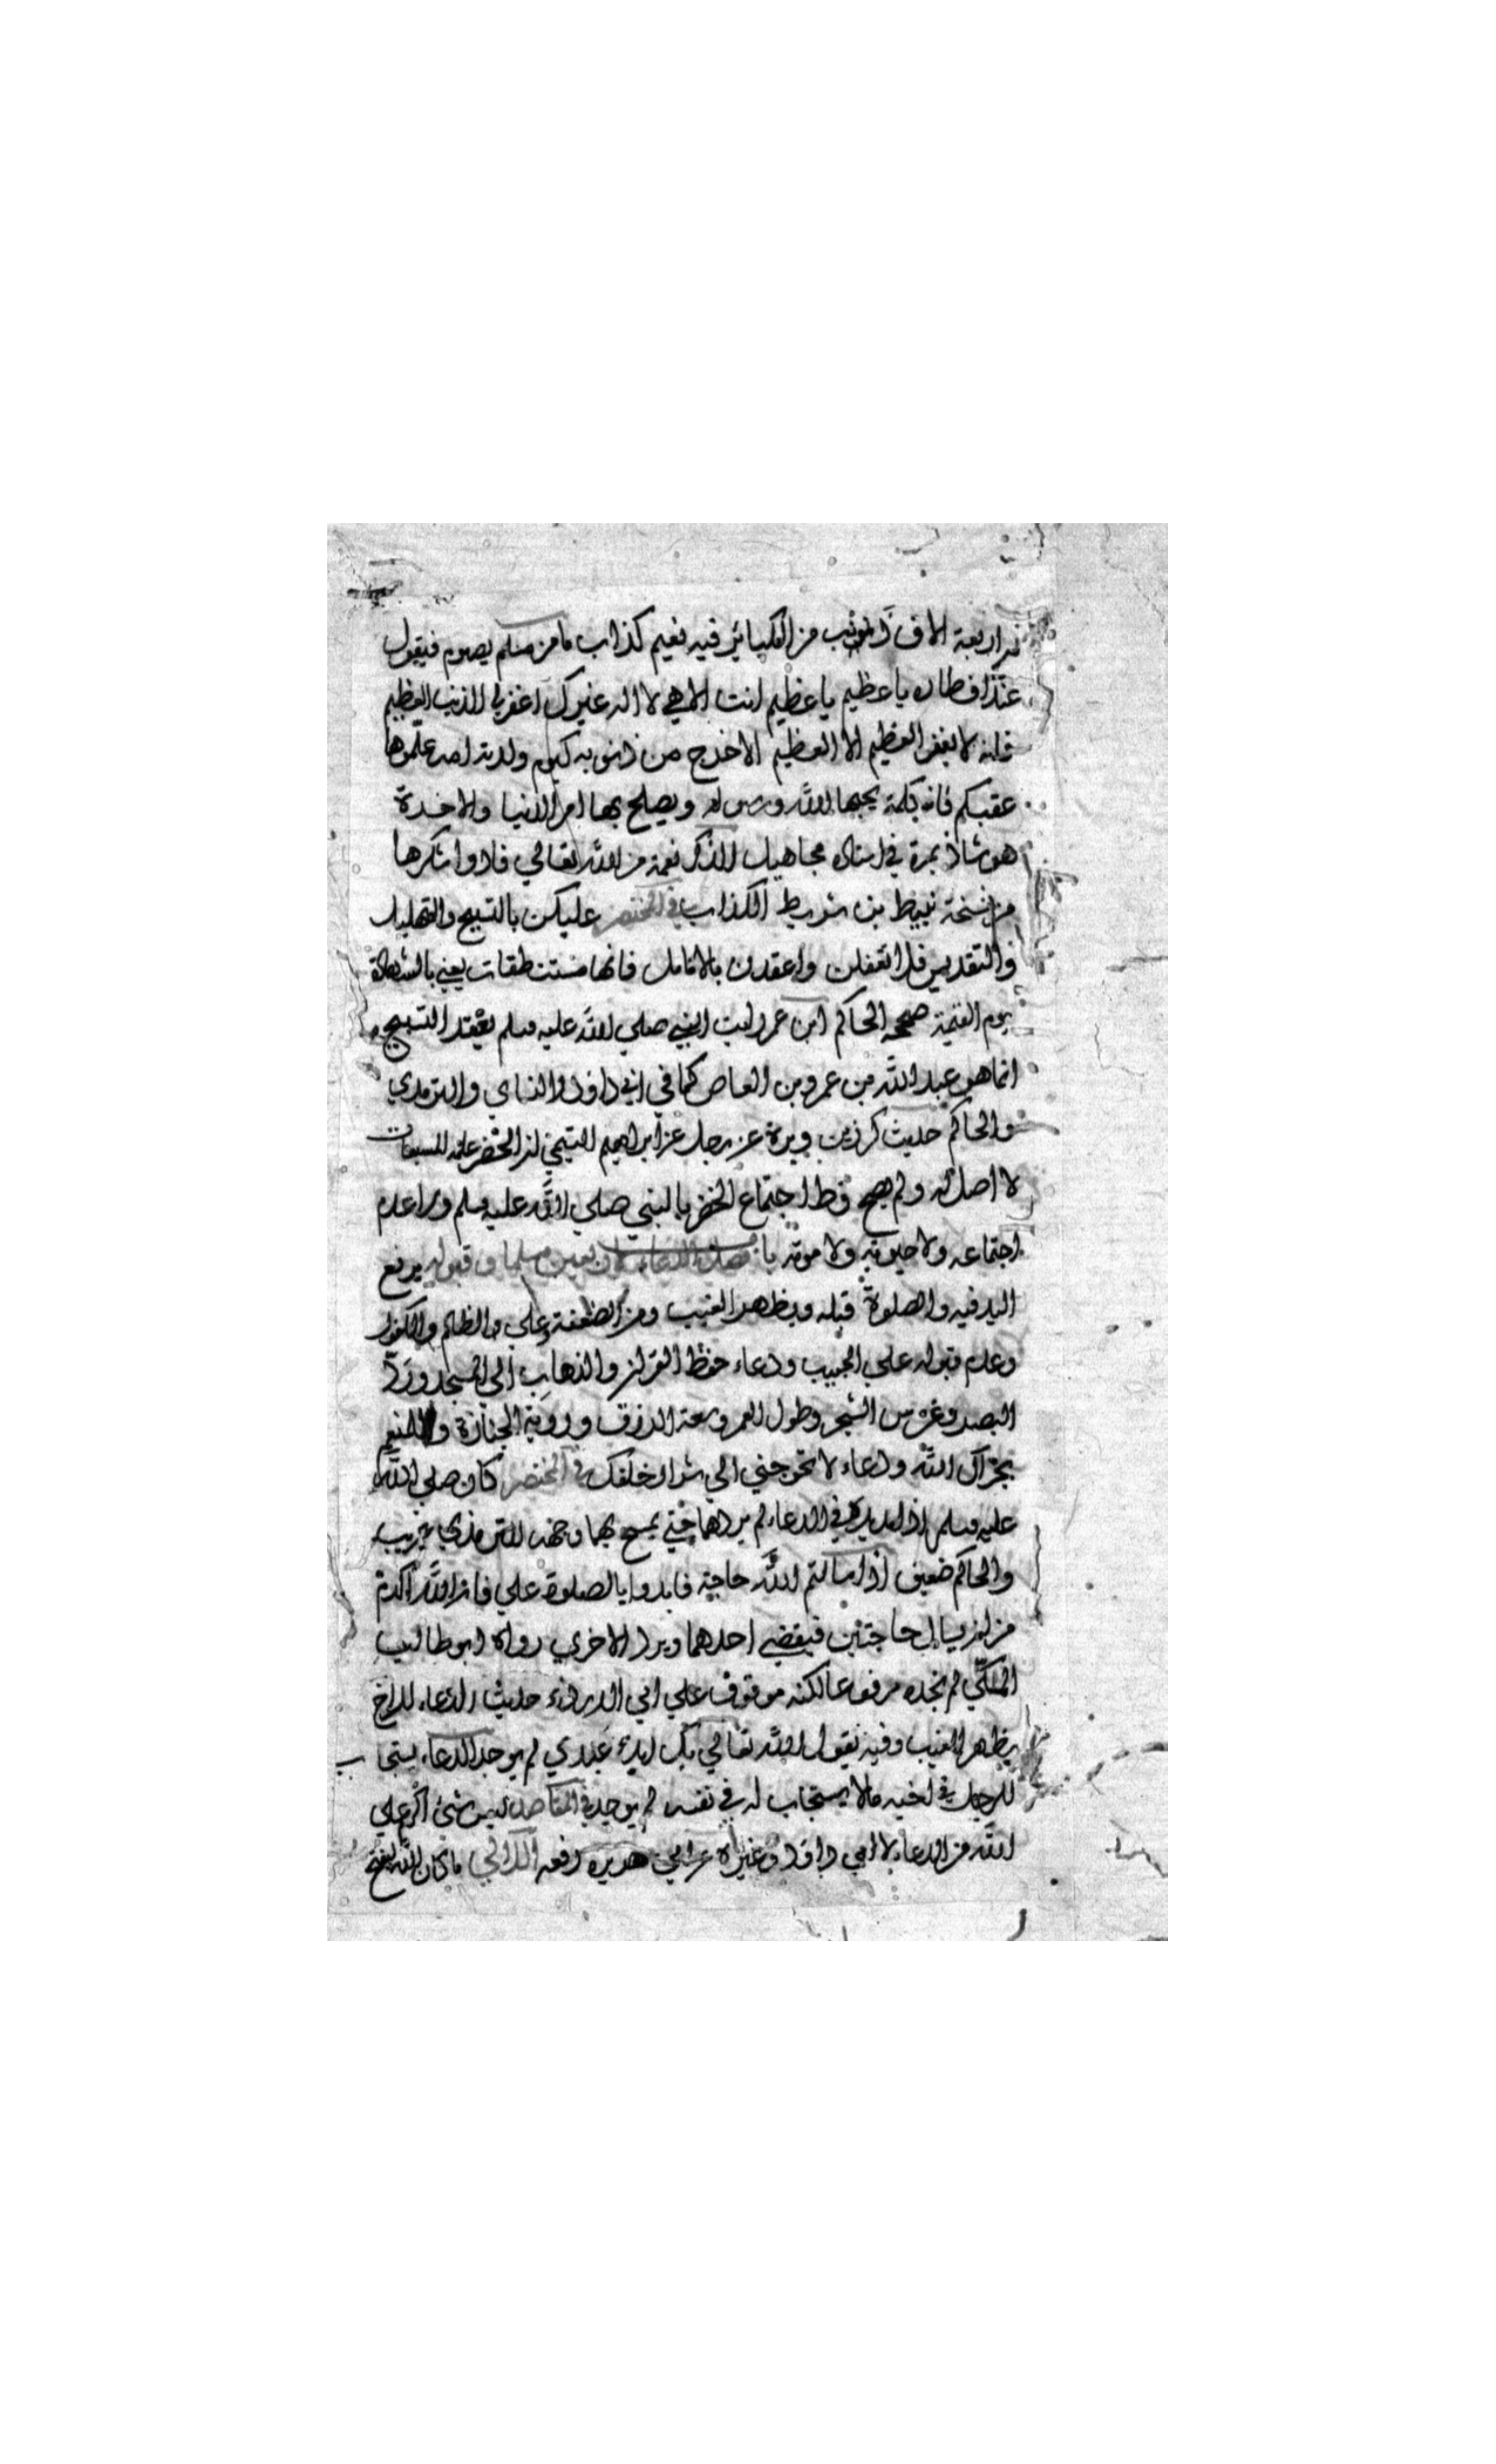 اربعة الاف ذنب من الكبائر فيه نعيم كذاب ما من مسلم يصوم فيقول
عند افطاره يا عظيم يا عظيم انت الاهي لا اله غيرك اغفر لي الذنب العظيم
فانه لا يغفر العظيم الا العظيم الا خرج من ذنوبه كيوم ولدته امه علموها
عقبكم فانه كلمة يحبها الله ورسوله ويصلح بها امر الدنيا والاخرة
هو شاذ بمرة في اسناده مجاهيل الذكر نعمة من الله تعالي فادوا شكرها
من نسخة نبيط بن شريط الكذاب في المختصر عليكن بالتسبيح والتهليل
والتقديس فلا تغفلن واعقدن بالانامل فانها مستنطقات يعني بالشهادة
يوم القيمة صححه الحاكم ابن عمر رايت النبي صلي الله عليه وسلم يعقد التسبيح
انما هو عبد الله بن عمرو بن العاص كما في ابي داود والنساي والترمذي
والحاكم حديث كرز بن وبرة عن رجل عن ابراهيم التيمي ان الخضر علمه المسبعات
لا اصل له ولم يصح قط اجتماع الخضر بالنبي صلي الله عليه وسلم ولا عدم
اجتماعه ولا حيوته ولا موته باب فضل الدعاء وان يعين مسلما وقبوله برفع
اليد فيه والصلوة قبله وبظهر الغيب ومن الضعفة وعلي الظالم والكفور
وعدم قبوله علي الحبيب ودعاء حفظ القران والذهاب الي المسجد ورد
البصر وغرس الشجر وطول العمر وسعة الرزق وروية الجنازة والمنعم
بجزاك الله ودعاء لا تحوجني الي شرار خلقك في المختصر كان صلي الله
عليه وسلم اذا مد يديه في الدعاء لم يردهما حتي يمسح بهما وجهه للترمذي غريب
والحاكم ضعيف اذا سالتم الله حاجة فابدوا بالصلوة علي فان الله اكرم
من ان يسال حاجتين فيقضي احدهما ويرد الاخري رواه ابو طالب
المكي لم نجده مرفوعا لكنه موقوف علي ابي الدرداء حديث الدعاء للاخ
بظهر الغيب وفيه يقول الله تعالي بك ابدء عبدي لم يوجد الدعاء يستجاب
للرجل في اخيه مالا يستجاب له في نفسه لم يوجد في المقاصد ليس شيء اكرم علي
الله من الدعاء لابي داود وغيره عن ابي هريرة رفعه اللالي ما كان الله ليفتح